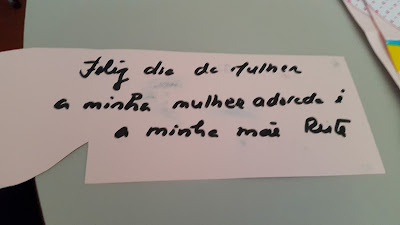 Feliz dia da Mulher
a minha mulher adorada i
a minha mãe Rute